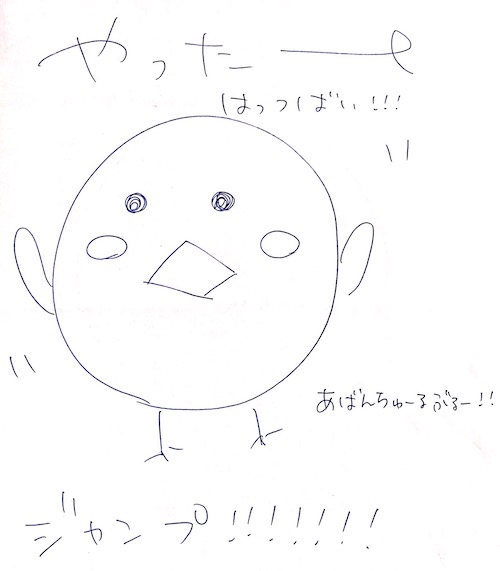 やったー
はっつばい!!!
あばんちゅーるぶるー!!
ジャンプ!!!!!!!